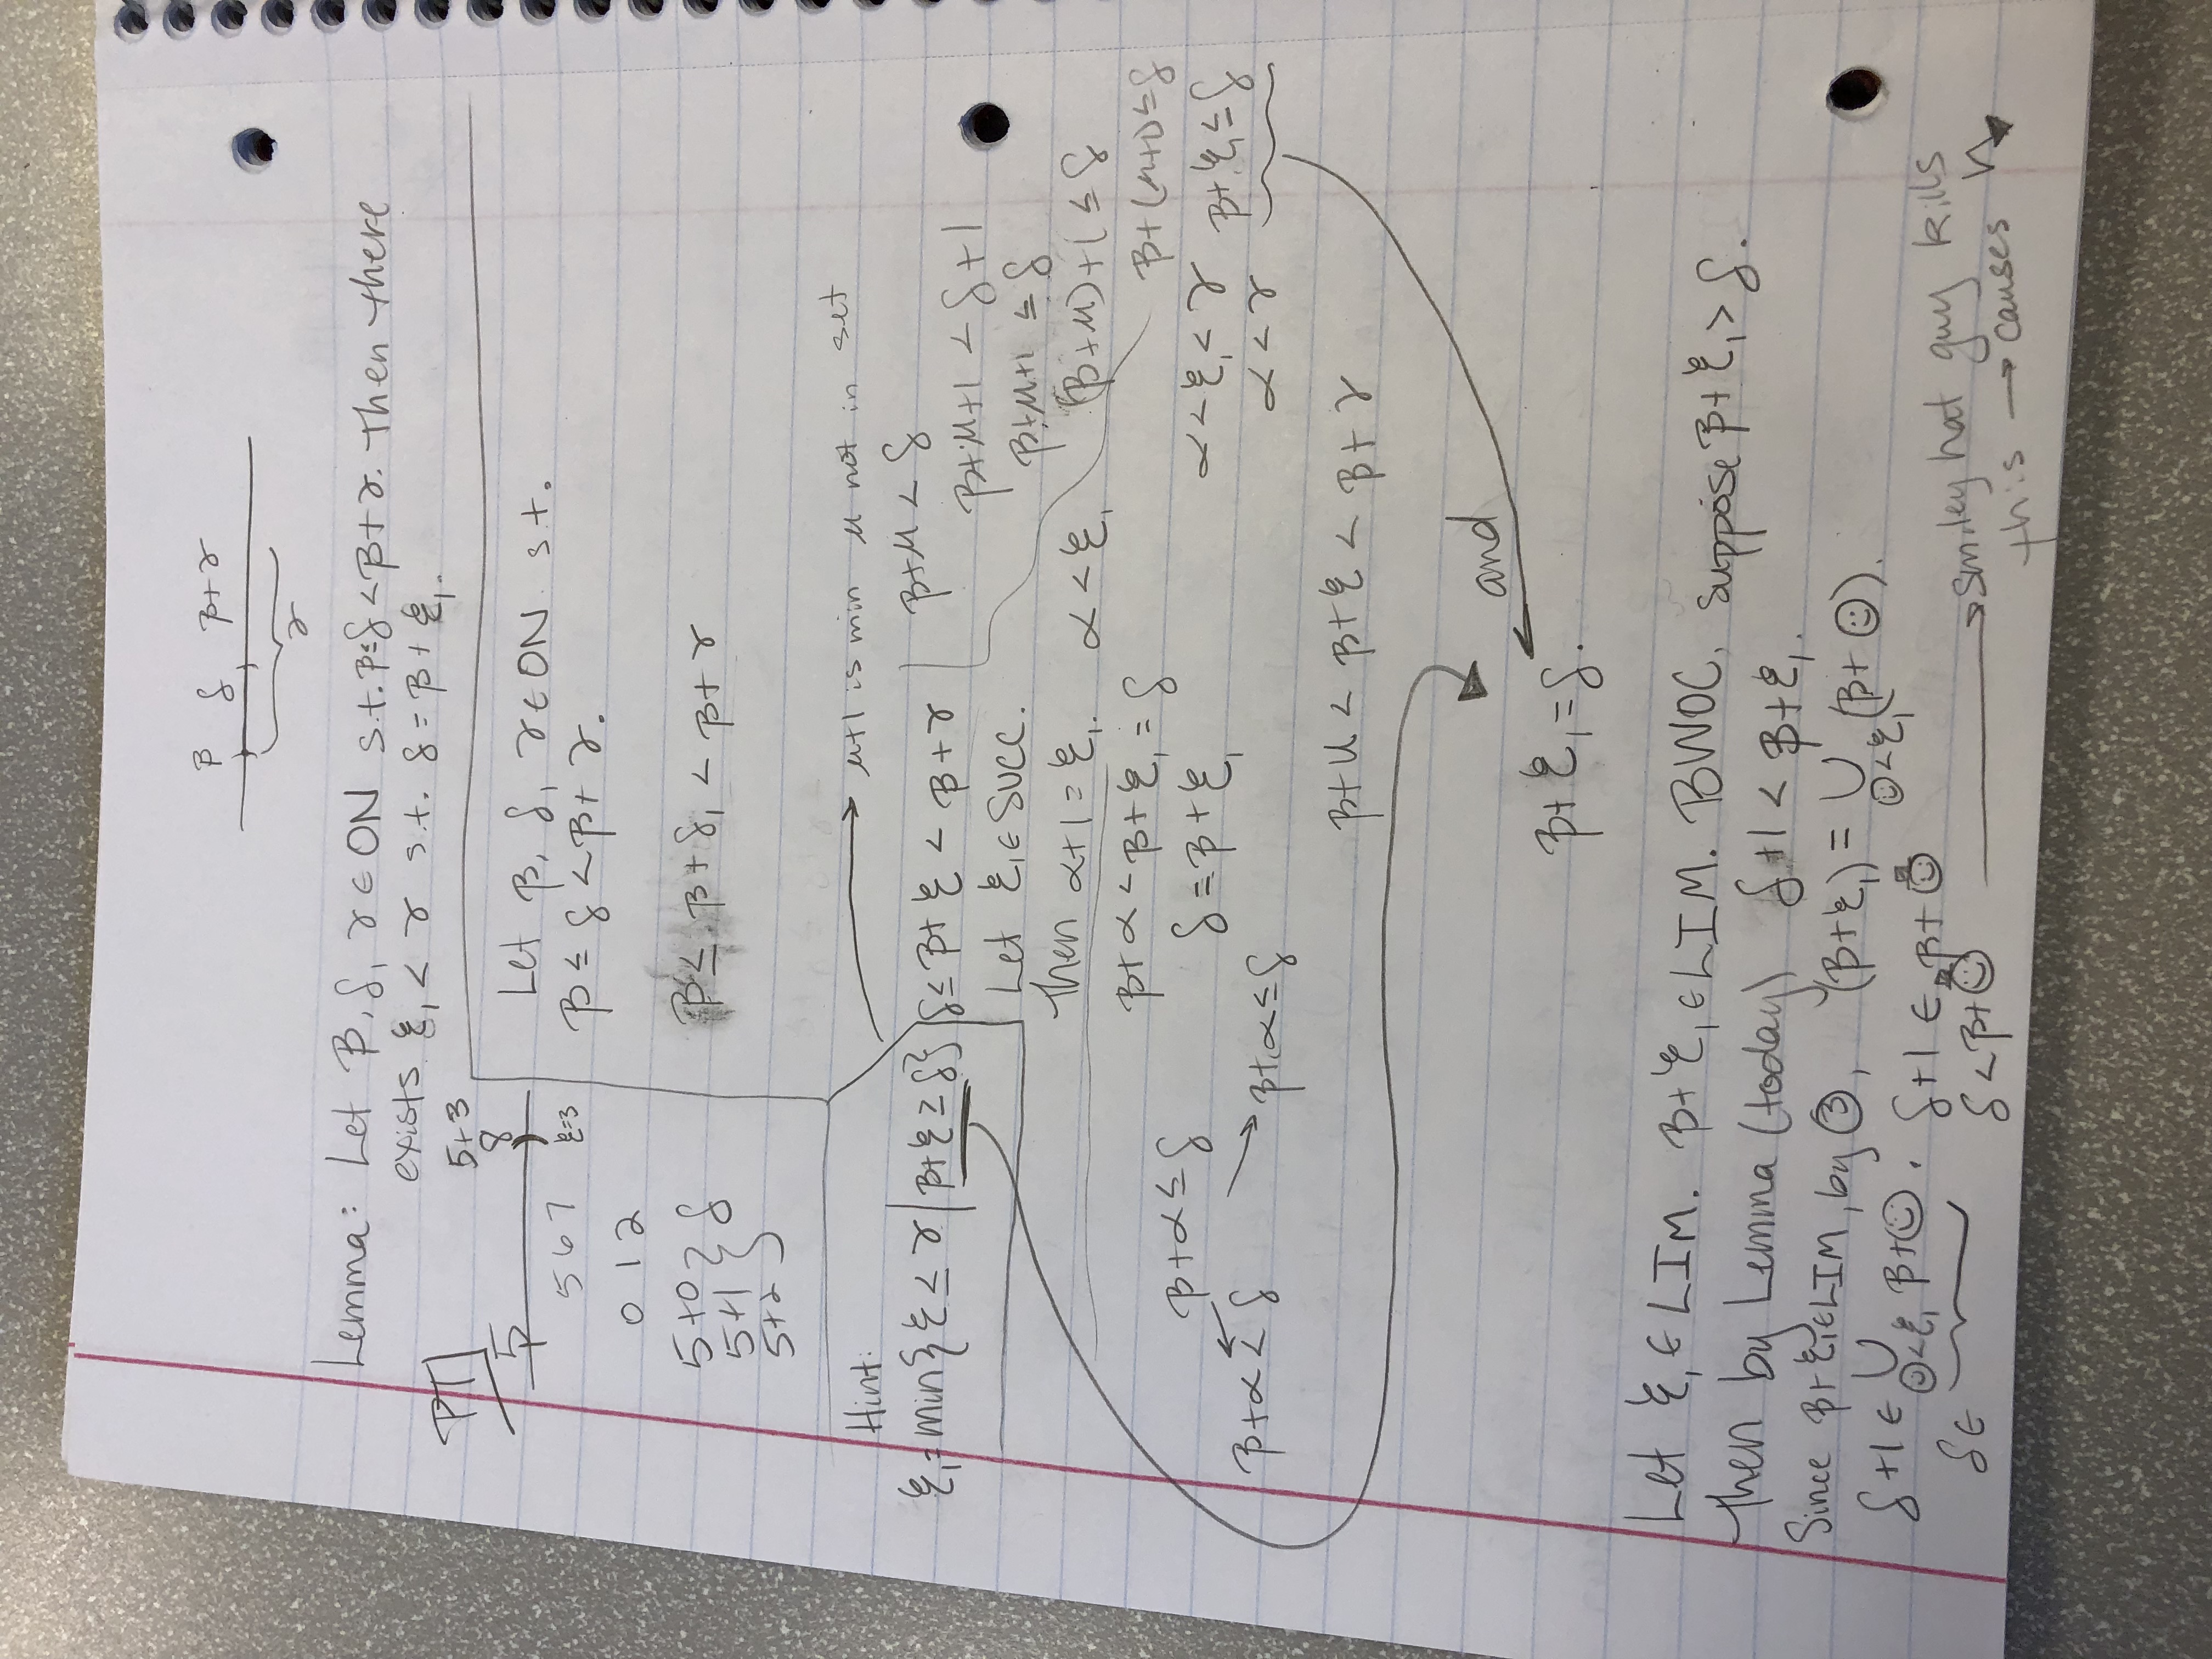 β δ β+γ
γ
Lemma: Let β, δ, γ ∈ ON s.t. β≤δ<β+γ. Then there
exists ξ₁ < γ s.t. δ = β + ξ₁.
Pf
5+3
5 8
β
5 6 7 ξ=3
0 1 2
5+0
5+1 } δ
5+2
Let β, δ, γ ∈ ON s.t.
β ≤ δ < β + γ.
β ≤ β + δ₁ < β + γ
Hint:
ξ₁ = min{ξ ≤ γ | β+ξ ≥ δ}
→ μ+1 is min μ not in set
δ ≤ β + ξ < β + γ
Let ξ₁ ∈ SUCC.
Then α+1 = ξ₁. α < ξ₁
β+α < β+ξ₁ = δ
δ = β+ξ₁
β+μ < δ
β+μ+1 < δ+1
β+μ+1 ≤ δ
(β+μ)+1 ≤ δ
β+(μ+1) ≤ δ
β+ξ₁ ≤ δ
α < ξ₁ < γ
α < γ
β+α ≤ δ
β+α < δ
β+α ≤ δ
β+μ < β+ξ < β+γ
and
β+ξ₁ = δ.
Let ξ₁ ∈ LIM. β+ξ₁ ∈ LIM. BWOC, suppose β+ξ₁ > δ.
Then by Lemma (today) δ+1 < β+ξ₁.
Since β+ξ₁ ∈ LIM, by ③, (β+ξ₁) = ∪ ☺<ξ₁ (β+☺).
δ+1 ∈ ∪ ☺<ξ₁ β+☺. δ+1 ∈ β+☺
δ ∈ δ < β+☺ → smiley hat guy kills
this → causes ↯